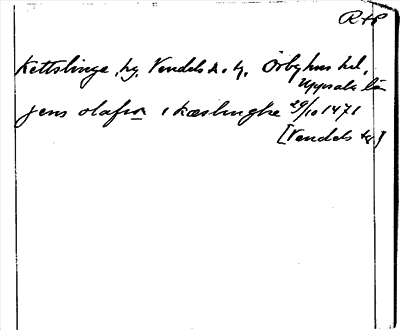 R+P
Kettslinge, by, Vendels sn. h. Örbyhus hd,
Uppsala län
jens olafsson i kæslinghe 29/10 1471
[Vendels ky]